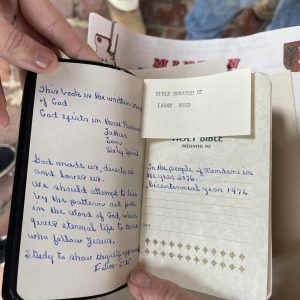 This book is the written Word
of God.
God exists in three Persons
Father
Son
Holy Spirit
God made us, directs us
and loves us.
We should attempt to live
by the pattern set forth
in the word of God, which
gives eternal life to those
who follow Jesus.
Study to show thyself approved
BIBLE DONATED BY
LARRY REED
HOLY BIBLE
PRESENTED TO
To the people of Munden in
the year 2076.
Bicentennial year 1976